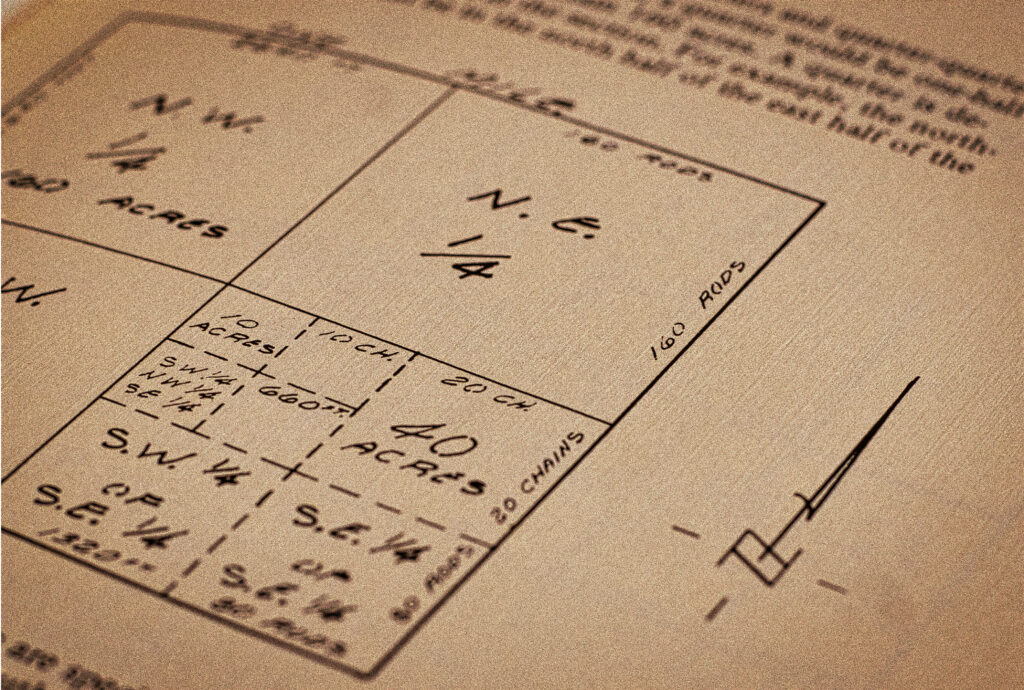 quarter-quarter
would be one-half
A quarter is de-
the section. For example, the north-
is the north half of the east half of the
MILE
160 RODS
N. W.
1/4
160 ACRES
N. E.
1/4
160 RODS
W.
10
ACRES
10 CH.
20 CH.
SW 1/4
NW 1/4
SE 1/4
660 FT.
40
ACRES
20 CHAINS
S.W. 1/4
OF
S.E. 1/4
1320 FT.
S.E. 1/4
OF
S.E. 1/4
80 RODS
80 RODS
N
are